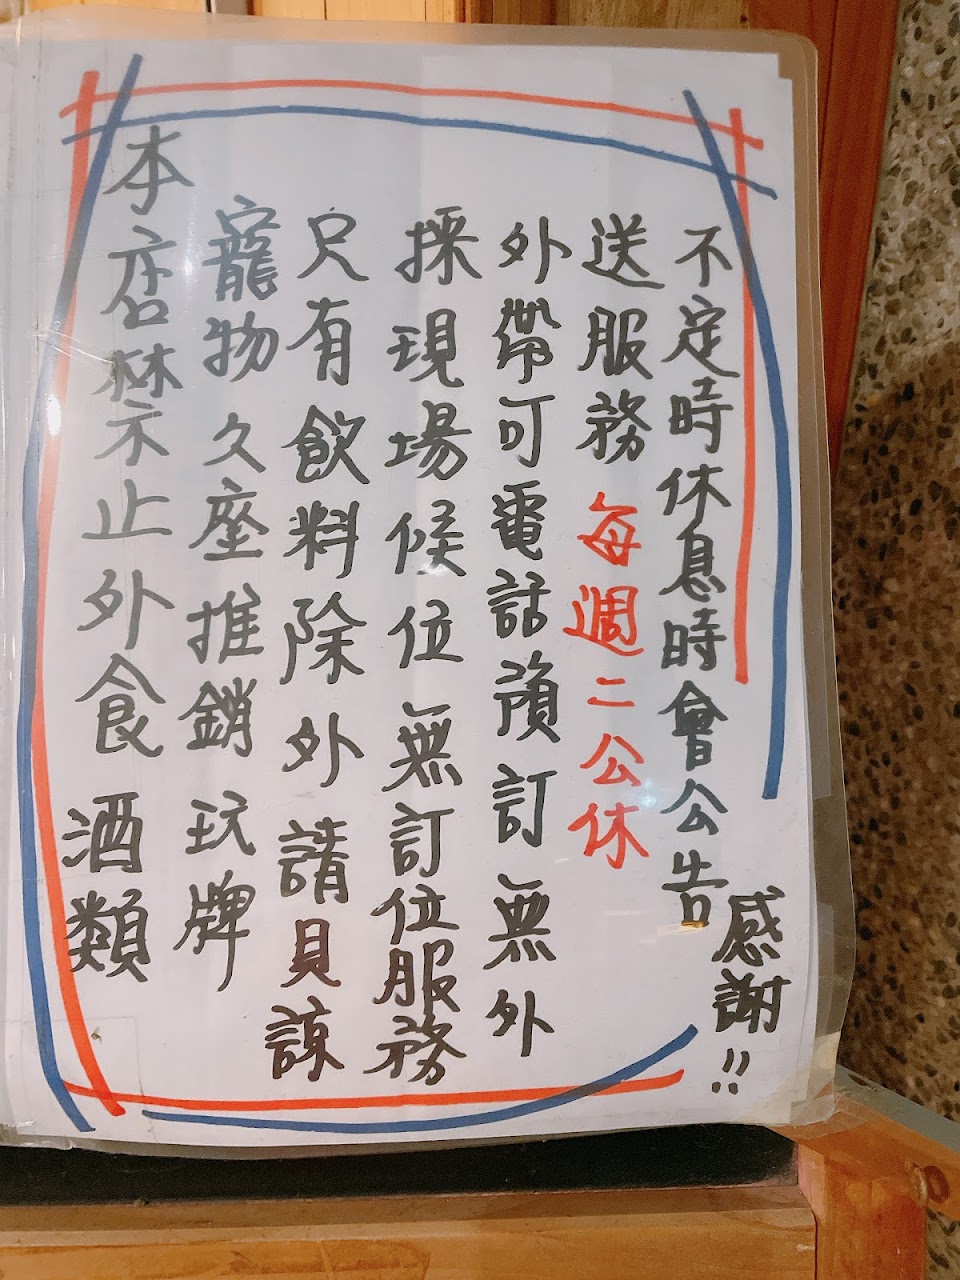 本店禁止外食酒類
寵物久座推銷玩牌
只有飲料除外請見諒
採現場候位無訂位服務
外帶可電話預訂無外
送服務 每週二公休
不定時休息時會公告
感謝!!